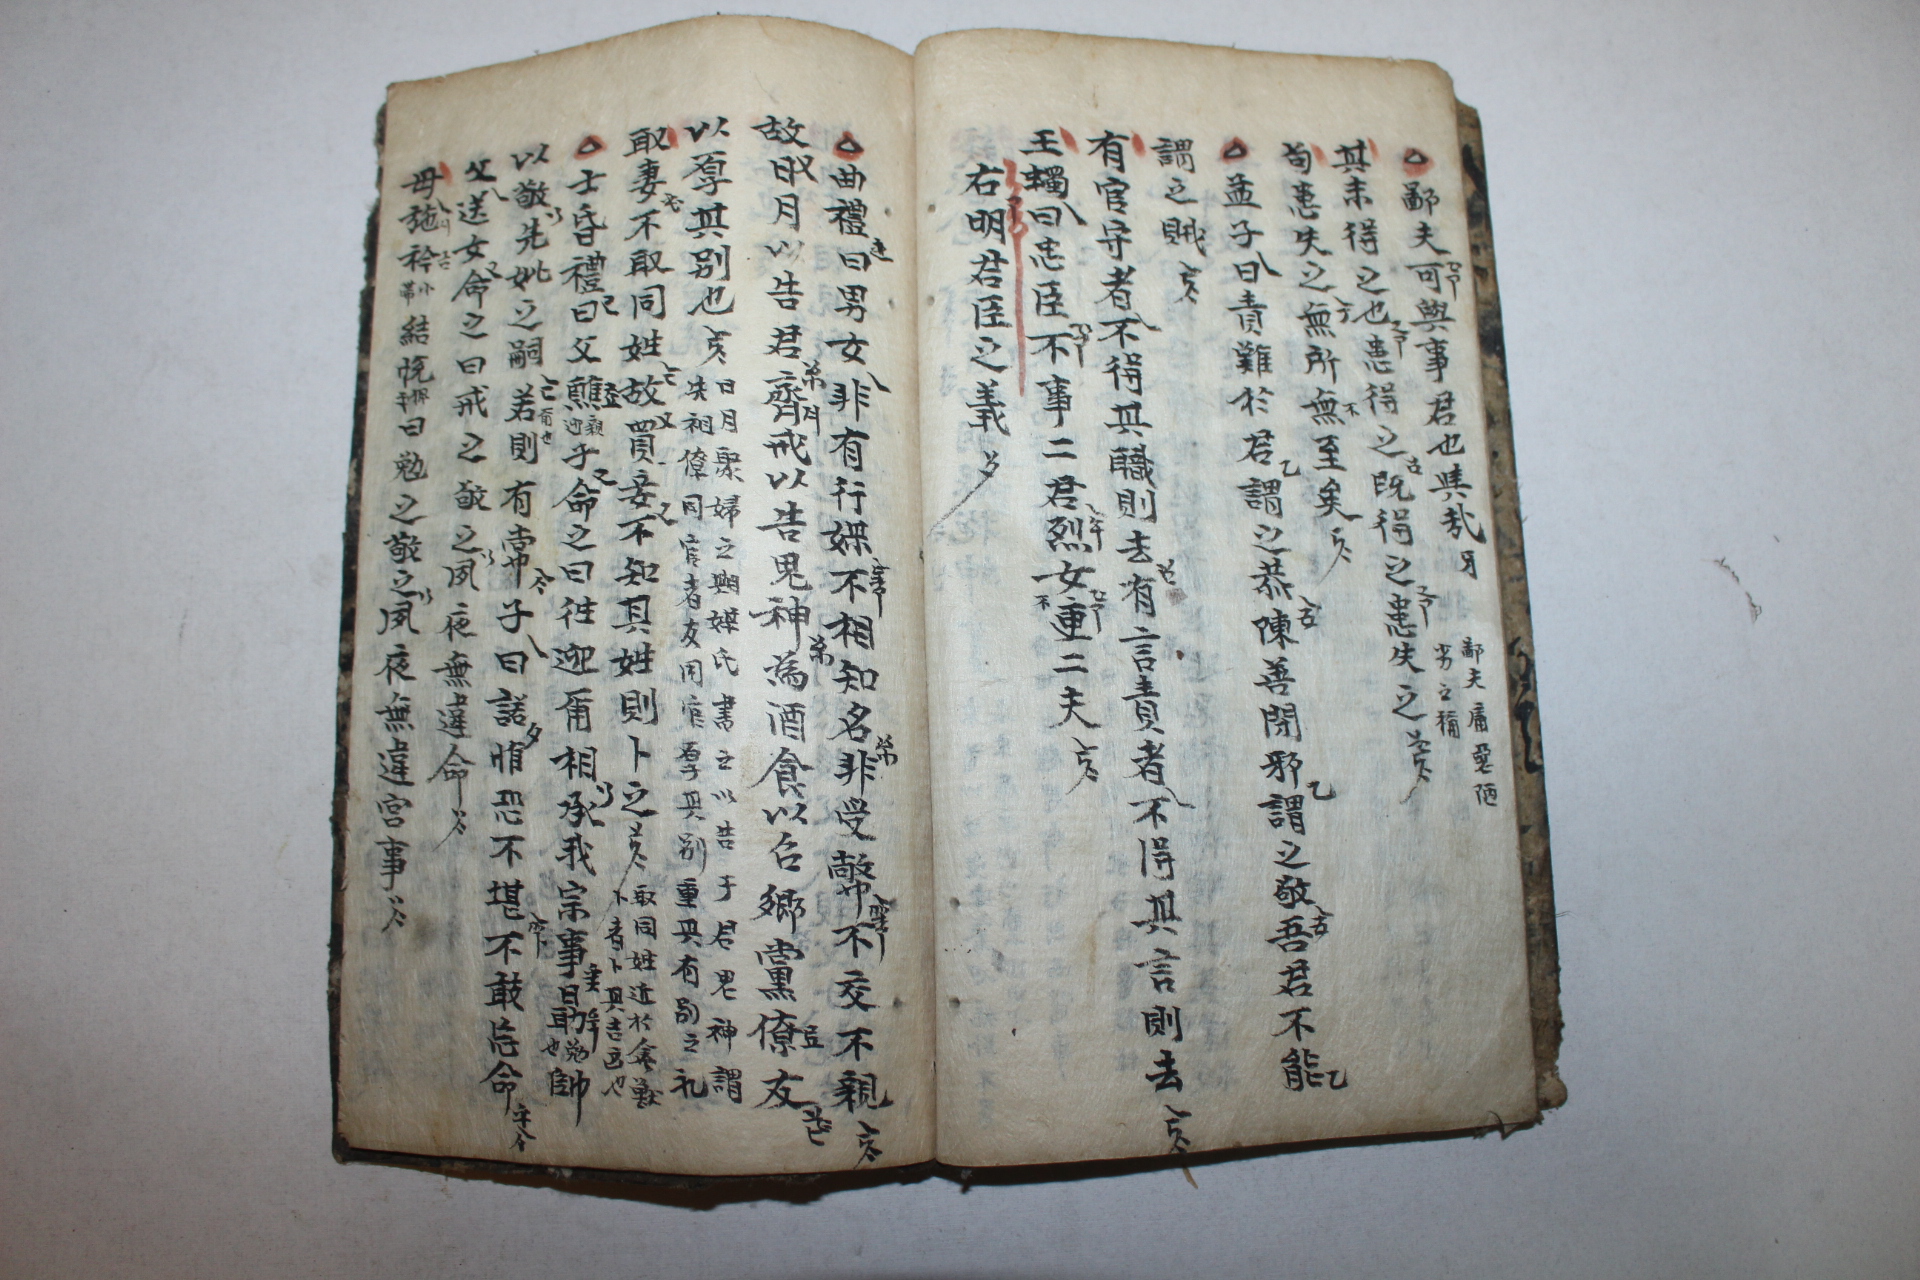 鄙夫可與事君也與哉
鄙夫庸惡陋
劣之稱
其未得之也患得之既得之患失之
苟患失之無所不至矣
孟子曰責難於君謂之恭陳善閉邪謂之敬吾君不能
謂之賊
有官守者不得其職則去有言責者不得其言則去
王蠋曰忠臣不事二君烈女不更二夫
右明君臣之義
曲禮曰男女非有行媒不相知名非受幣不交不親
故日月以告君齊戒以告鬼神為酒食以召鄉黨僚友
以厚其別也
日月娶婦之期媒氏書之以告于君鬼神謂
先祖僚同官者友同官厚其別重其有別之礼
取妻不取同姓故買妾不知其姓則卜之
取同姓近於禽獸
卜者卜其吉凶也
士昏禮曰父醮子命之曰往迎爾相承我宗事勗帥
以敬先妣之嗣若則有常子曰諾惟恐不堪不敢忘命
父送女命之曰戒之敬之夙夜無違命
母施衿結帨曰勉之敬之夙夜無違宮事